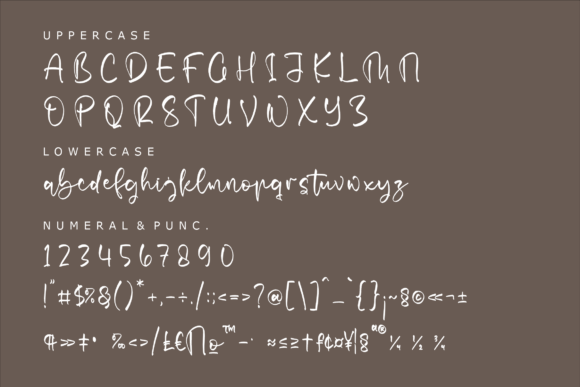 UPPERCASE
ABCDEFGHIJKLMN
OPQRSTUVWXYZ
LOWERCASE
abcdefghijklmnopqrstuvwxyz
NUMERAL & PUNC.
1234567890
!"#$%&()*+,-÷./:;<=>?@[\]^_`{}¡~§©«¬±
¶»‡• ‰<>/£€∏º™−· ≈≤≥†ƒ¢¤¥|§ª®¼ ½ ¾